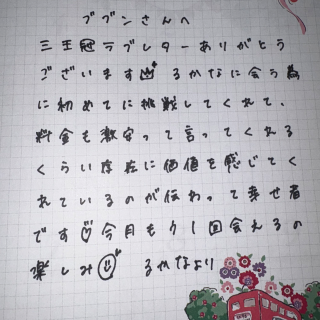 ブブンさんへ
三王冠ラブレターありがとう
ございます るかなに会う為
に初めてに挑戦してくれて、
料金も激安って言ってくれる
くらい存在に価値を感じてく
れているのが伝わって幸せ者
です 今月もう1回会えるの
楽しみ るかなより